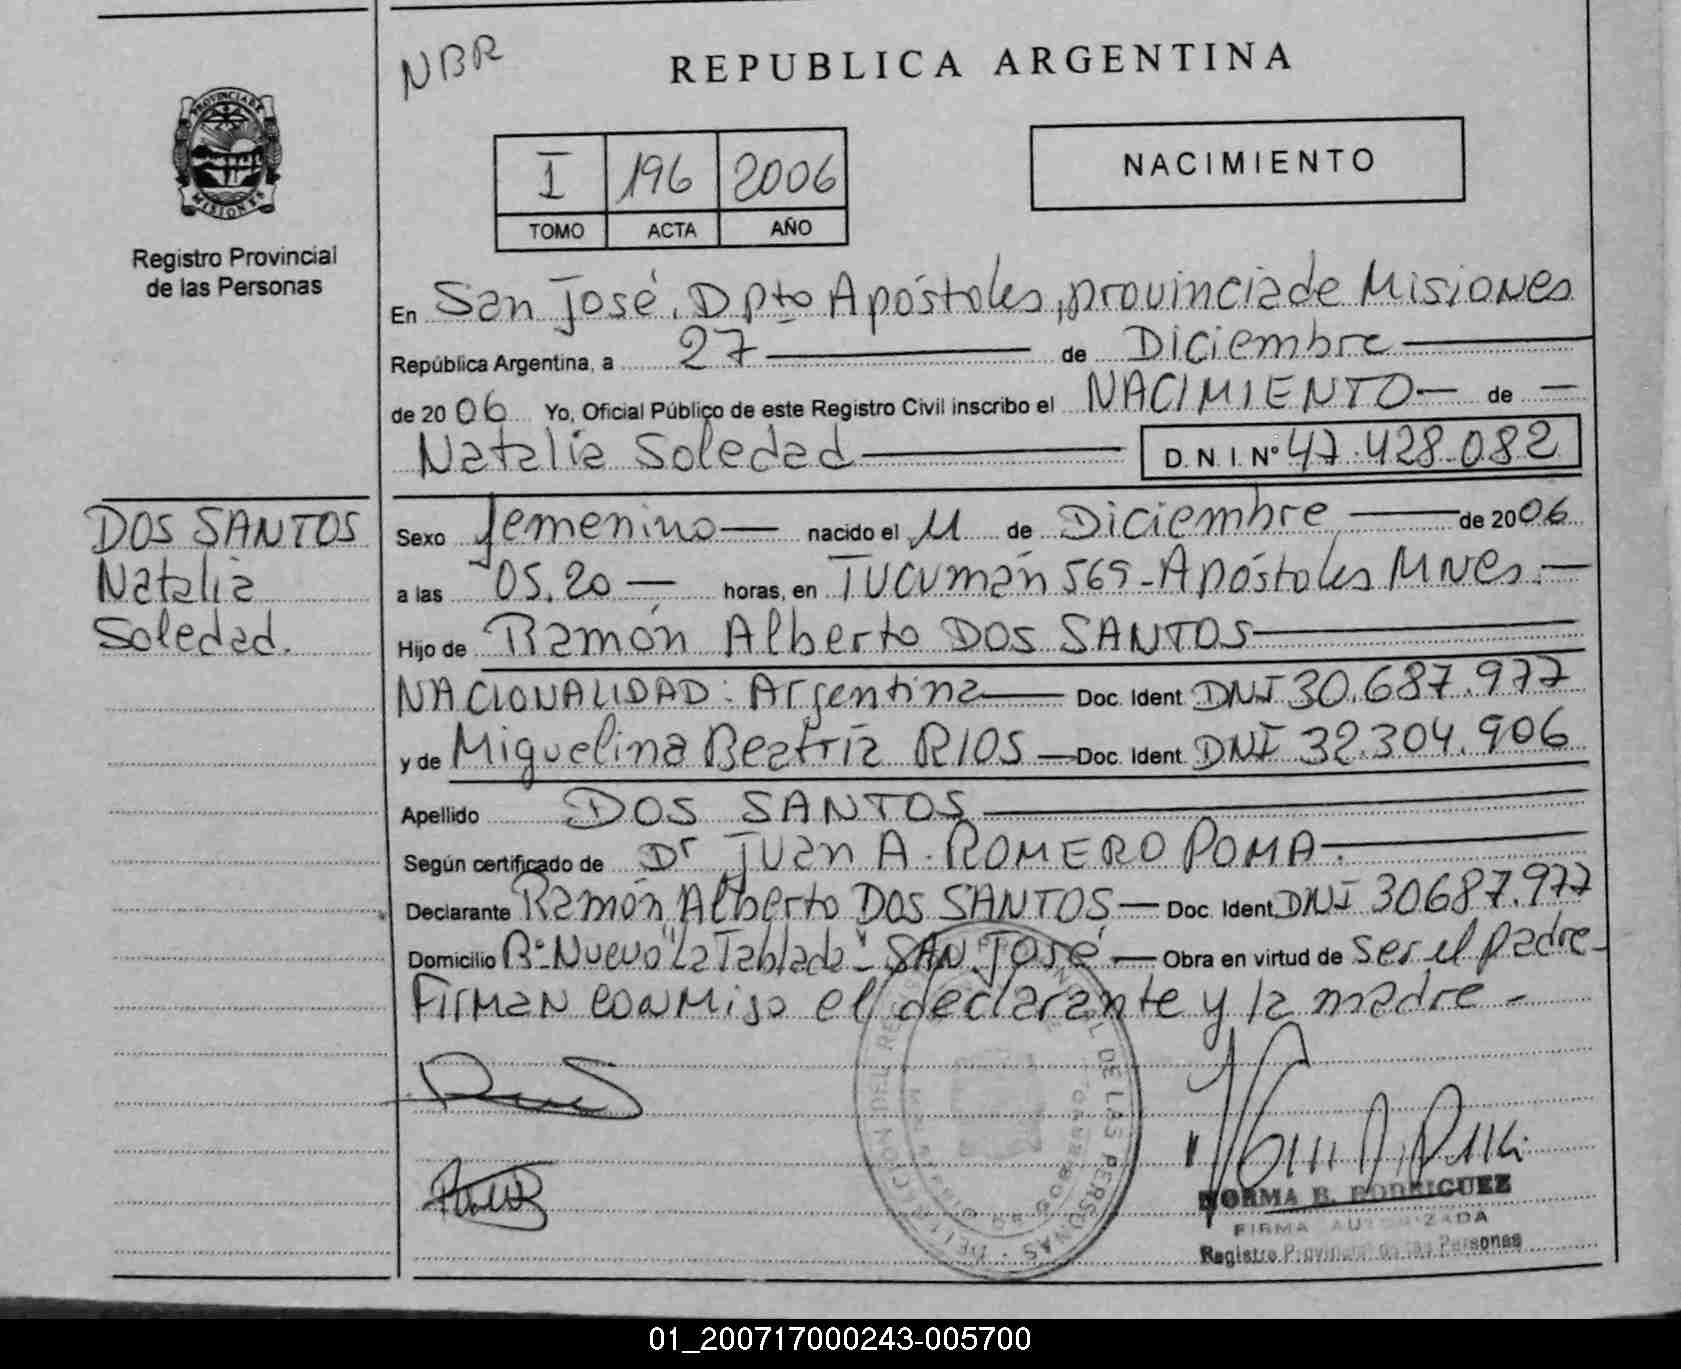 NBR
REPUBLICA ARGENTINA
PROVINCIA DE
MISIONES
Registro Provincial
de las Personas
I 196 2006
TOMO ACTA AÑO
NACIMIENTO
En San José, Dpto Apóstoles, provincia de Misiones
República Argentina, a 27 de Diciembre
de 2006 Yo, Oficial Público de este Registro Civil inscribo el NACIMIENTO de
Natalia Soledad D.N.I. Nº 47.428.082
DOS SANTOS
Natalia
Soledad.
Sexo femenino nacido el 11 de Diciembre de 2006
a las 05.20 horas, en Tucumán 565 - Apóstoles Mnes.
Hijo de Ramón Alberto DOS SANTOS
NACIONALIDAD: Argentina Doc. Ident. DNI 30.687.977
y de Miguelina Beatríz RIOS Doc. Ident. DNI 32.304.906
Apellido DOS SANTOS
Según certificado de Dr Juan A. ROMERO POMA.
Declarante Ramón Alberto DOS SANTOS Doc. Ident. DNI 30687.977
Domicilio Bº Nuevo "La Tablada" - SAN JOSÉ Obra en virtud de ser el padre -
Firman conmigo el declarante y la madre -
DE LAS PERSONAS
NORMA B. RODRIGUEZ
FIRMA AUTORIZADA
Registro Provincial de las Personas
01_200717000243-005700